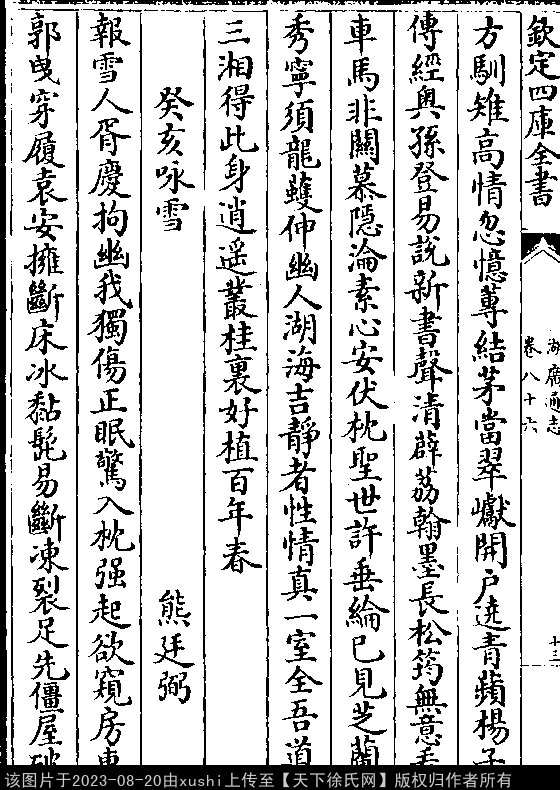 欽定四庫全書
湖廣通志
卷八十六
十三
方馴雉高情忽憶蓴結茅當翠巘開戶遶青蘋楊子
傳經奥孫登易說新書聲清薜荔翰墨長松筠無意
車馬非關慕隱淪素心安伏枕聖世許垂綸已見芝蘭
秀寧須龍蠖伸幽人湖海吉靜者性情真一室全吾道
三湘得此身逍遥叢桂裏好植百年春
癸亥咏雪
熊廷弼
報雪人胥慶拘幽我獨傷正眠驚入枕强起欲窺房東
郭曳穿履袁安擁斷床冰黏髭易斷凍裂足先僵屋破
该图片于2023-08-20由xushi上传至【天下徐氏网】版权归作者所有